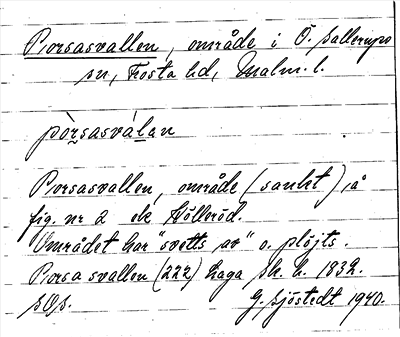 Porsasvallen, område i Ö. Sallerups
sn, Frosta hd, Malm. l.
pòrsasválan
Porsasvallen, område (sankt) å
fig. nr 2 ek Hölleröd.
Området har "svetts av" o. plöjts.
Porsa svallen (222) haga sk. h. 1832.
G. Sjöstedt 1940.